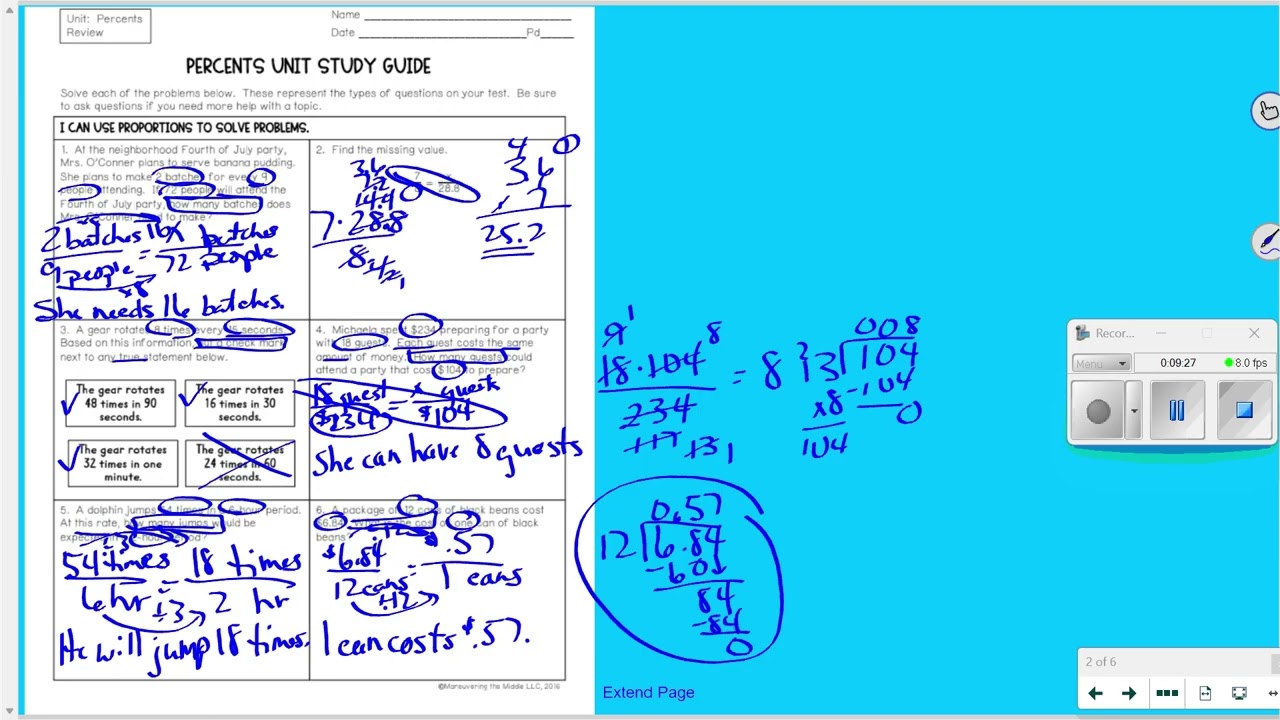 Unit: Percents
Review
Name
Date Pd
PERCENTS UNIT STUDY GUIDE
Solve each of the problems below. These represent the types of questions on your test. Be sure
to ask questions if you need more help with a topic.
I CAN USE PROPORTIONS TO SOLVE PROBLEMS.
1. At the neighborhood Fourth of July party,
Mrs. O'Conner plans to serve banana pudding.
She plans to make 2 batches for every 9
people attending. If 72 people will attend the
Fourth of July party, how many batches does
Mrs. O'Conner need to make?
2 batches 16 x batches
9 people = 72 people
x8
She needs 16 batches.
2. Find the missing value.
7 = 28.8
3.6
7.2
14.4
7.28.8
8 4 2 1
4
36
7
25.2
3. A gear rotates 8 times every 15 seconds.
Based on this information, put a check mark
next to any true statement below.
The gear rotates
48 times in 90
seconds.
The gear rotates
16 times in 30
seconds.
The gear rotates
32 times in one
minute.
The gear rotates
24 times in 60
seconds.
4. Michaela spent $234 preparing for a party
with 18 guests. Each guest costs the same
amount of money. How many guests could
attend a party that cost $104 to prepare?
18 guest = x guests
$234 $104
She can have 8 guests
9 1 8
18·104 = 8
234
117 13 1
008
13 104
-104
0
x8
104
5. A dolphin jumps times in period.
At this rate, how many jumps would be
÷3
54 times = 18 times
6 hr ÷3 2 hr
He will jump 18 times.
6. A package of 12 cans of black beans cost
$6.84. What is the cost of one can of black
beans?
÷12
$6.84 = .57
12 cans 1 cans
÷12
1 can costs $.57.
0.57
12 6.84
-60
84
-84
0
©Maneuvering the Middle LLC, 2016
Extend Page
Recor...
Menu
0:09:27
8.0 fps
2 of 6